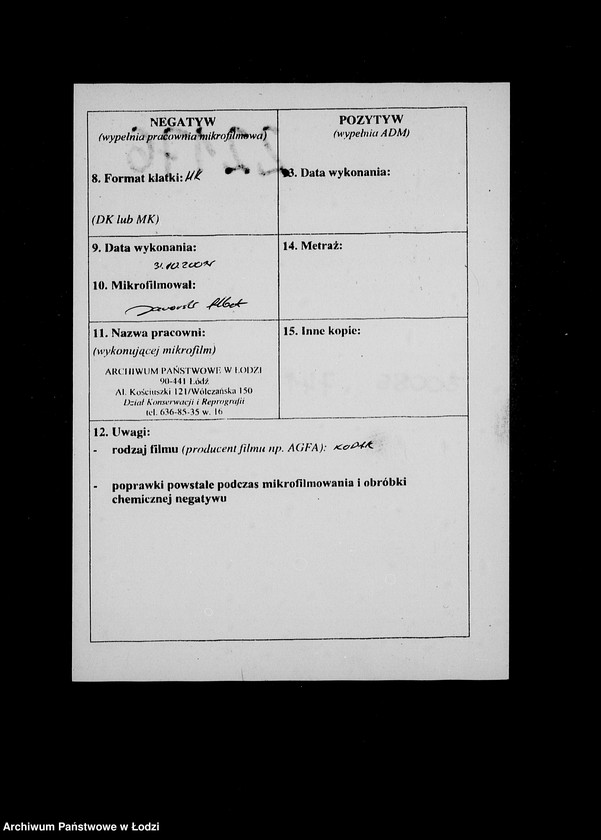 NEGATYW
(wypełnia pracownia mikrofilmowa)
8. Format klatki: MK
(DK lub MK)
9. Data wykonania:
10. Mikrofilmował:
11. Nazwa pracowni:
(wykonującej mikrofilm)
ARCHIWUM PAŃSTWOWE W ŁODZI
90-441 Łódź
Al. Kościuszki 121/Wólczańska 150
Dział Konserwacji i Reprografii
tel. 636-85-35 w. 16
POZYTYW
(wypełnia ADM)
13. Data wykonania:
14. Metraż:
15. Inne kopie:
12. Uwagi:
- rodzaj filmu (producent filmu np. AGFA): KODAK
- poprawki powstałe podczas mikrofilmowania i obróbki
chemicznej negatywu
Archiwum Państwowe w Łodzi